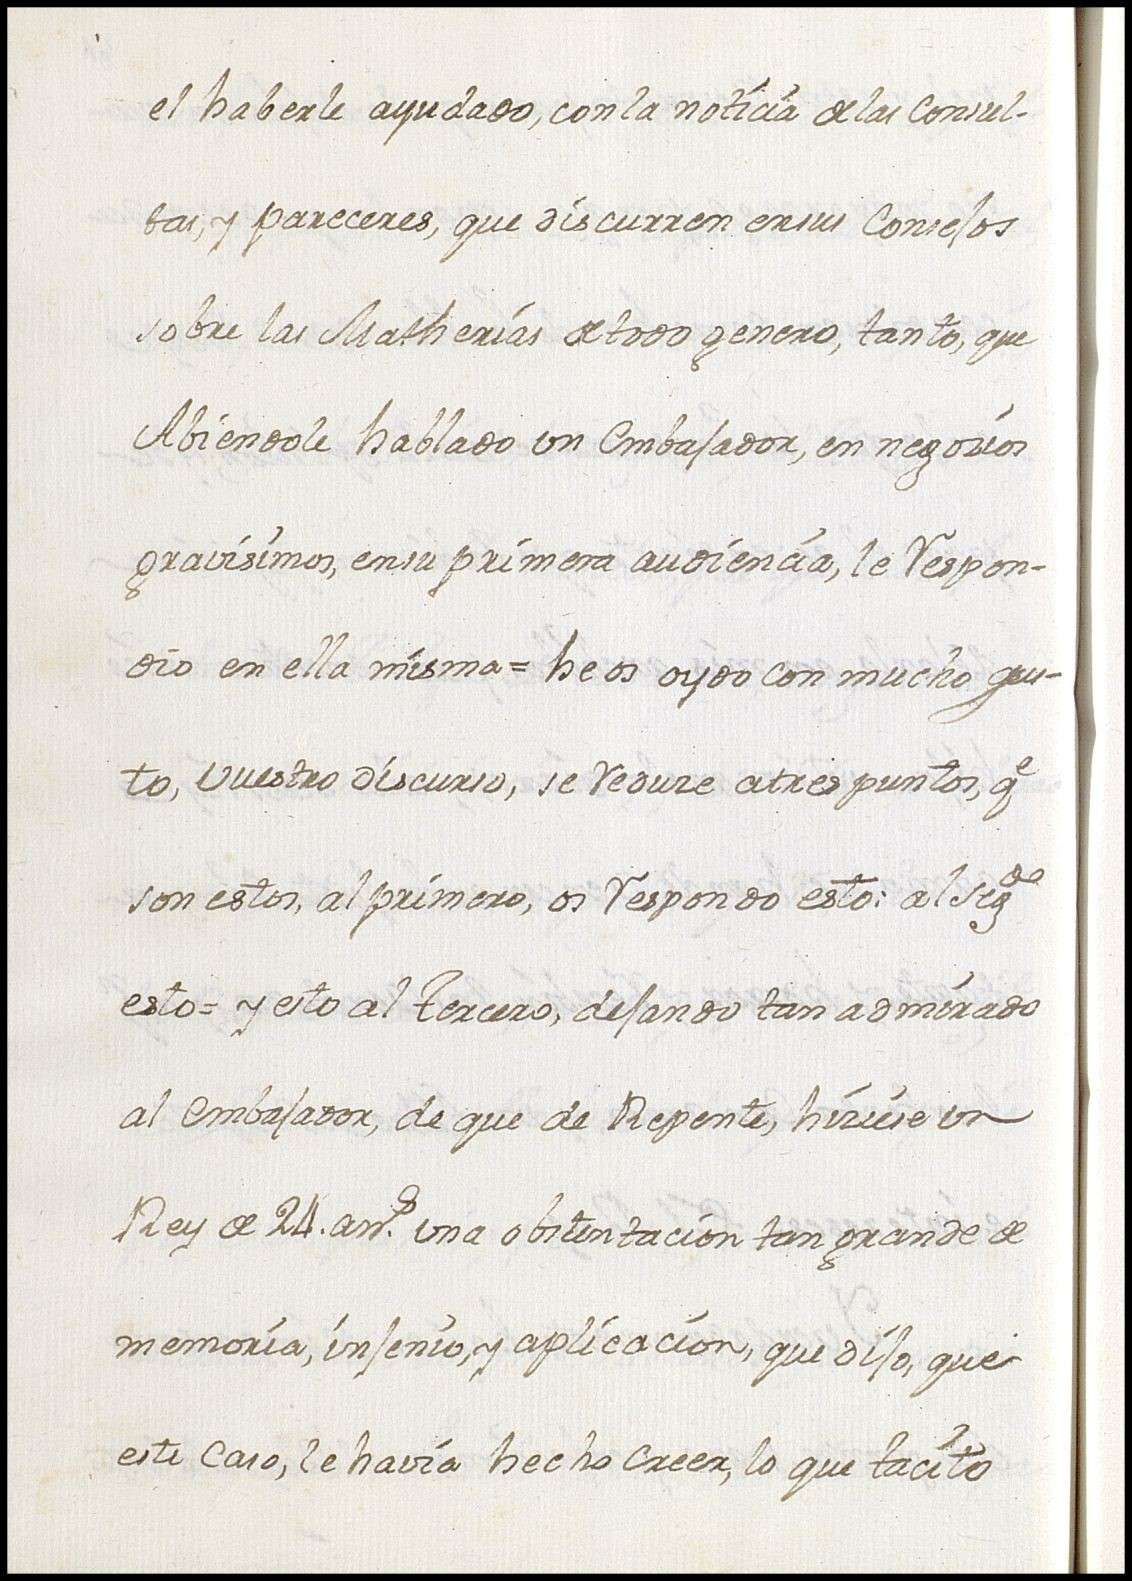 el haberle ayudado, con la noticia de las Consul-
tas, y pareceres, que discurren ensus Consejos
sobre las Matherias de todo genero, tanto, que
Abiendole hablado un Embajador, en negocios
gravisimos, ensu primera audiencia, le respon-
dio en ella misma = he os oydo con mucho gus-
to, vuestro discurso, se reduze a tres puntos, q.e
son estos, al primero, os respondo esto: al seg.do
esto = y esto al tercero, dejando tan admirado
al Embajador, de que de Repente, hiziese un
Rey de 24. an.s una obstentacion tan grande de
memoria, injenio, y aplicacion, que dijo, que
este Caso, le havia hecho Creer, lo que tacito